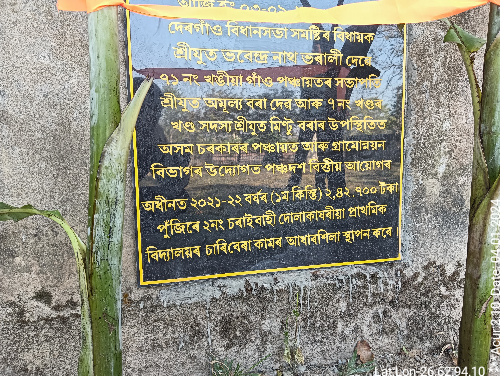 দেৰগাঁও বিধানসভা সমষ্টিৰ বিধায়ক
শ্ৰীযুত ভবেন্দ্ৰ নাথ ভৰালী দেৱে
৭১ নং খঙীয়া গাঁও পঞ্চায়তৰ সভাপতি
শ্ৰীযুত অমূল্য বৰা দেৱ আৰু ৭ নং খণ্ডৰ
খণ্ড সদস্য শ্ৰীযুত মিণ্টু বৰাৰ উপস্থিতিত
অসম চৰকাৰৰ পঞ্চায়ত আৰু গ্ৰামোন্নয়ন
বিভাগৰ উদ্যোগত পঞ্চদশ বিত্তীয় আয়োগৰ
অধীনত ২০২১-২২ বৰ্ষৰ (১ম কিস্তি) ২,৪২,৭০০ টকা
পুঁজিৰে ২নং চৰাইবাহী দোলাকাষৰীয়া প্ৰাথমিক
বিদ্যালয়ৰ চাৰিবেৰা কামৰ আধাৰশিলা স্থাপন কৰে
Lat Lon-26.62,94.10